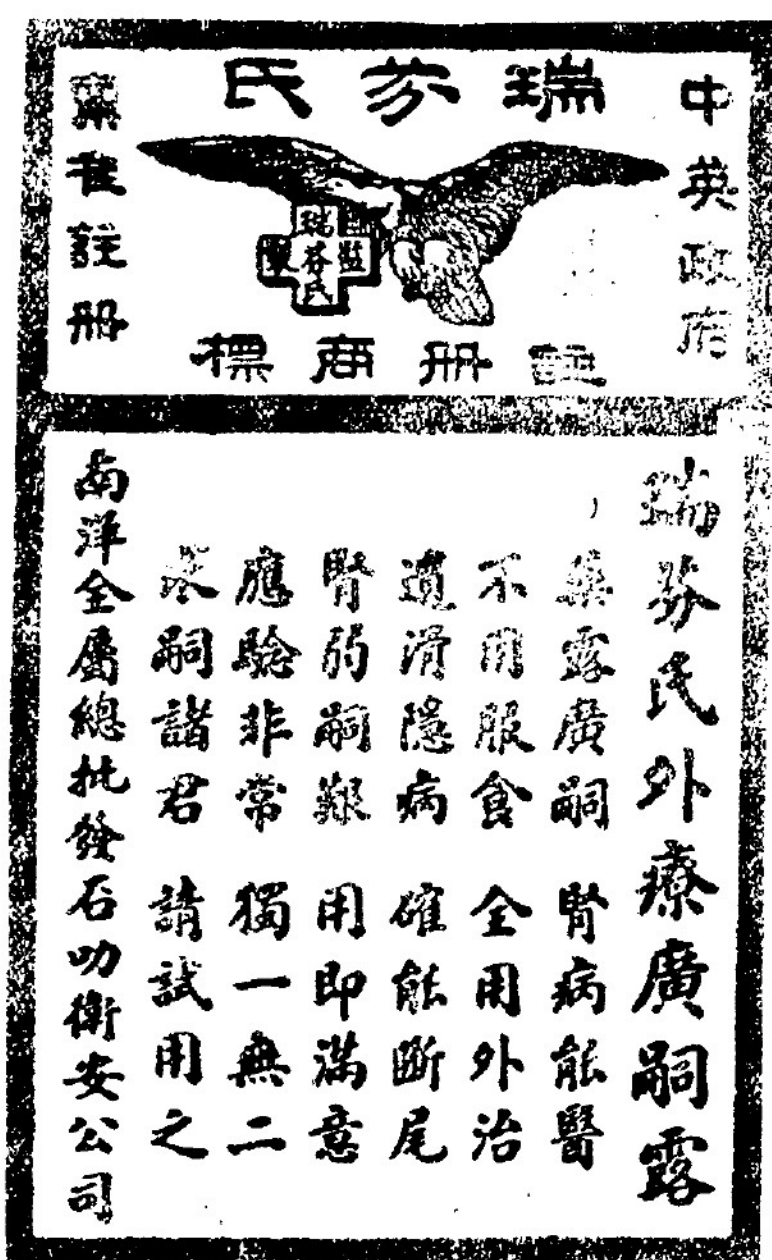 中英政府
瑞芬氏
瑞芬氏
監製
註册商標
稟准註册
瑞芬氏外療廣嗣露
藥露廣嗣 腎病能醫
不用服食 全用外治
遺滑隱病 確能斷尾
腎弱嗣艱 用即滿意
應驗非常 獨一無二
求嗣諸君 請試用之
南洋全屬總批發石叻衛安公司